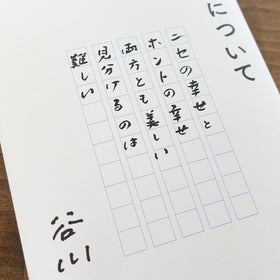 について
ニセの幸せと
ホントの幸せ
両方とも美しい
見分けるのは
難しい
谷川